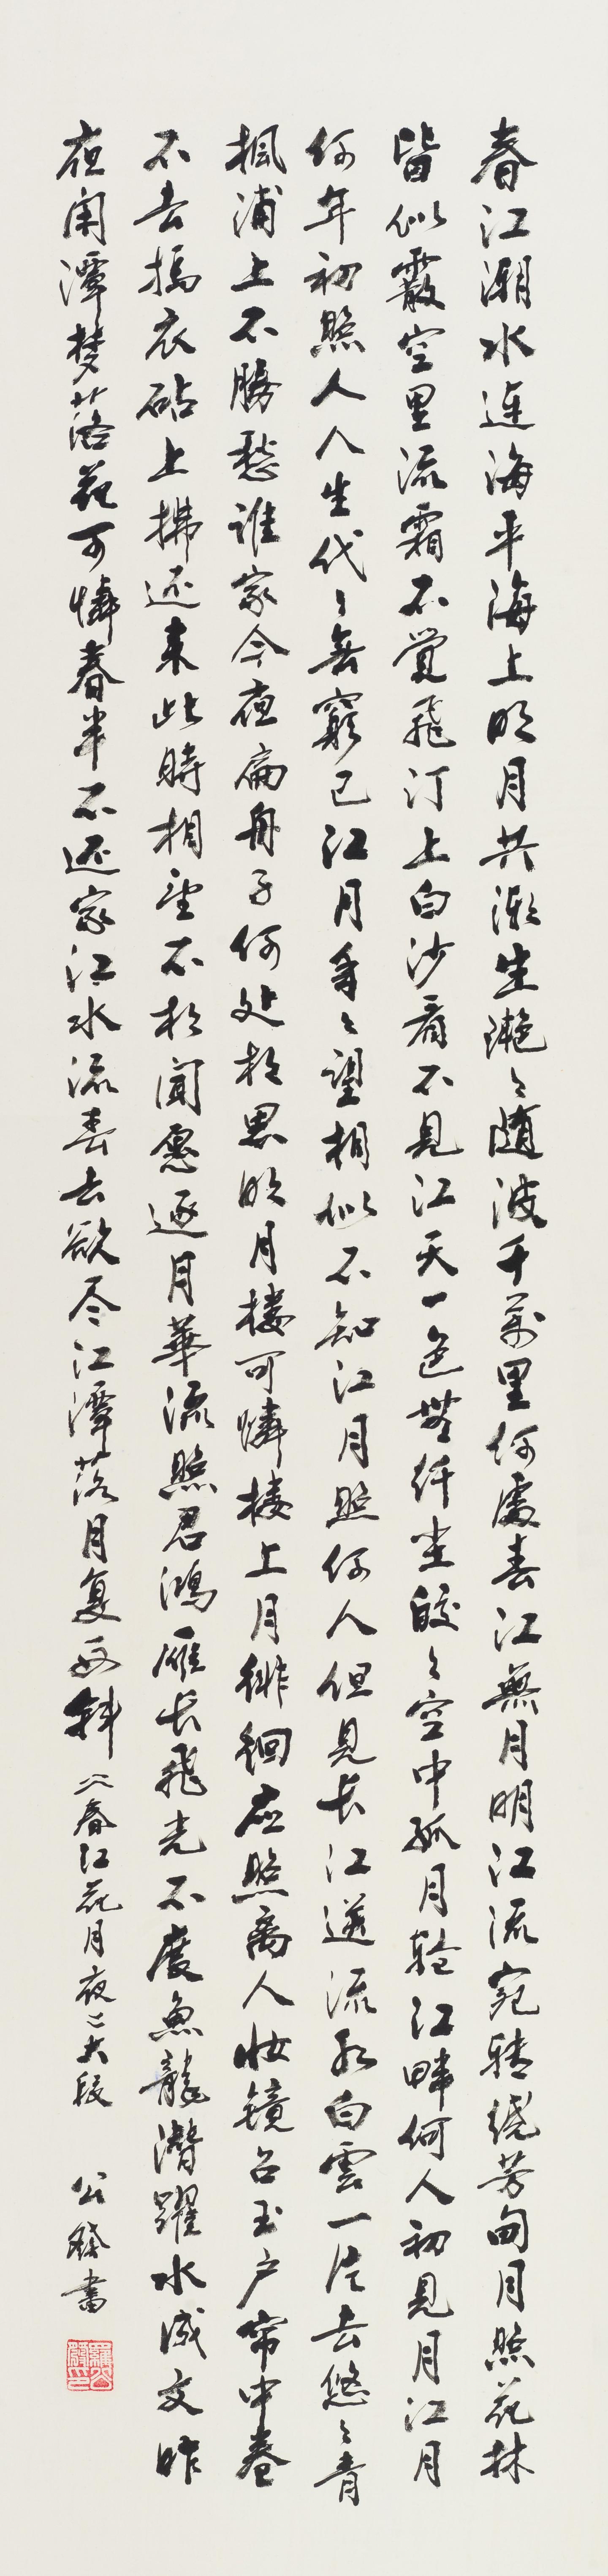 春江潮水连海平海上明月共潮生滟〻随波千万里何處春江無月明江流宛转绕芳甸月照花林
皆似霰空里流霜不觉飛汀上白沙看不見江天一色無纤尘皎〻空中孤月轮江畔何人初見月江月
何年初照人人生代〻無窮已江月年〻望相似不知江月照何人但見长江送流水白雲一片去悠〻青
枫浦上不勝愁谁家今夜扁舟子何处相思明月楼可憐楼上月徘徊应照离人妆镜台玉户帘中卷
不去捣衣砧上拂还来此時相望不相闻愿逐月華流照君鴻雁长飛光不度魚龍潜躍水成文昨
夜闲潭梦落花可憐春半不还家江水流春去欲尽江潭落月复西斜
春江花月夜二大段
公
書